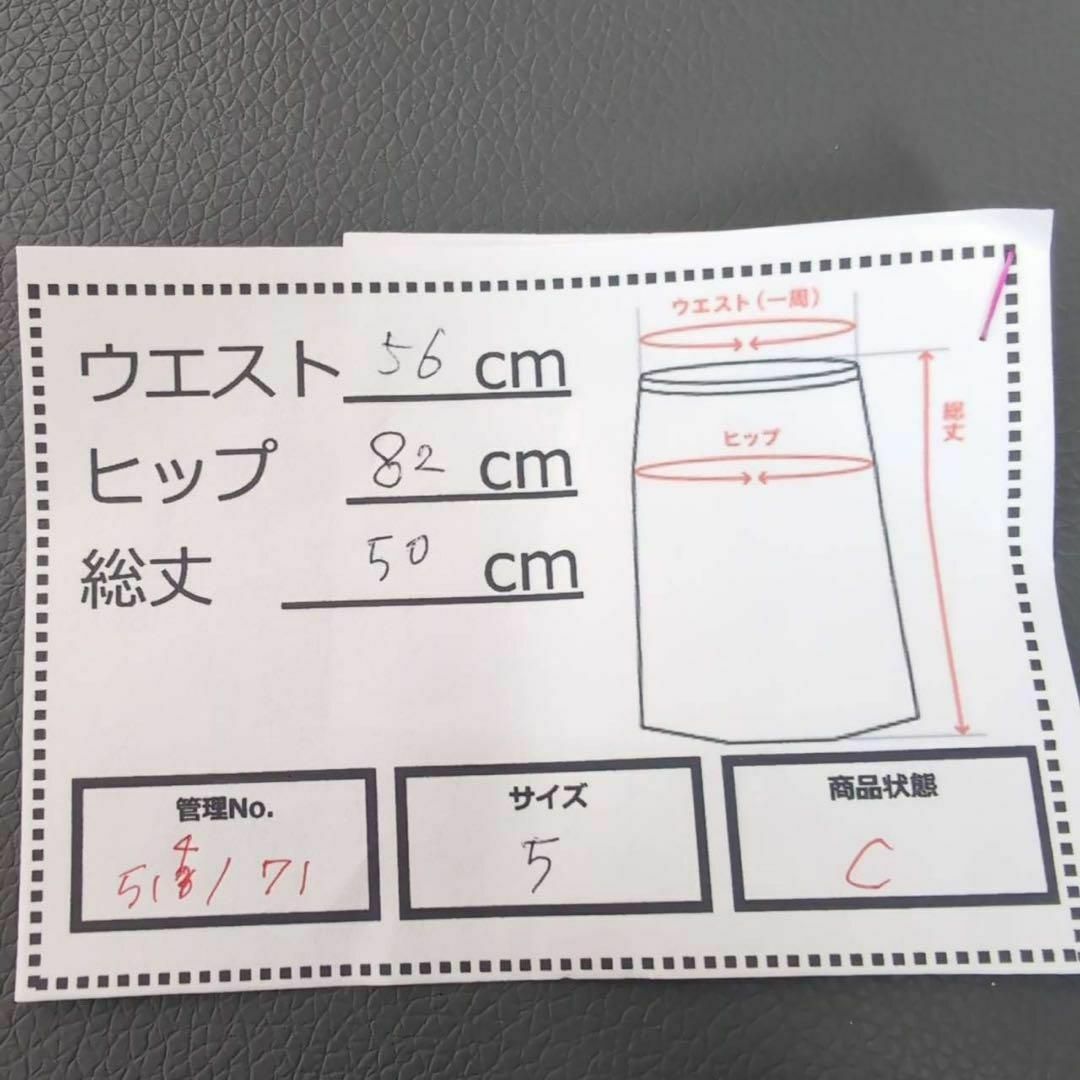 ウエスト 56 cm
ヒップ 82 cm
総丈 50 cm
ウエスト(一周)
ヒップ
総丈
管理No.
514/71
サイズ
5
商品状態
C